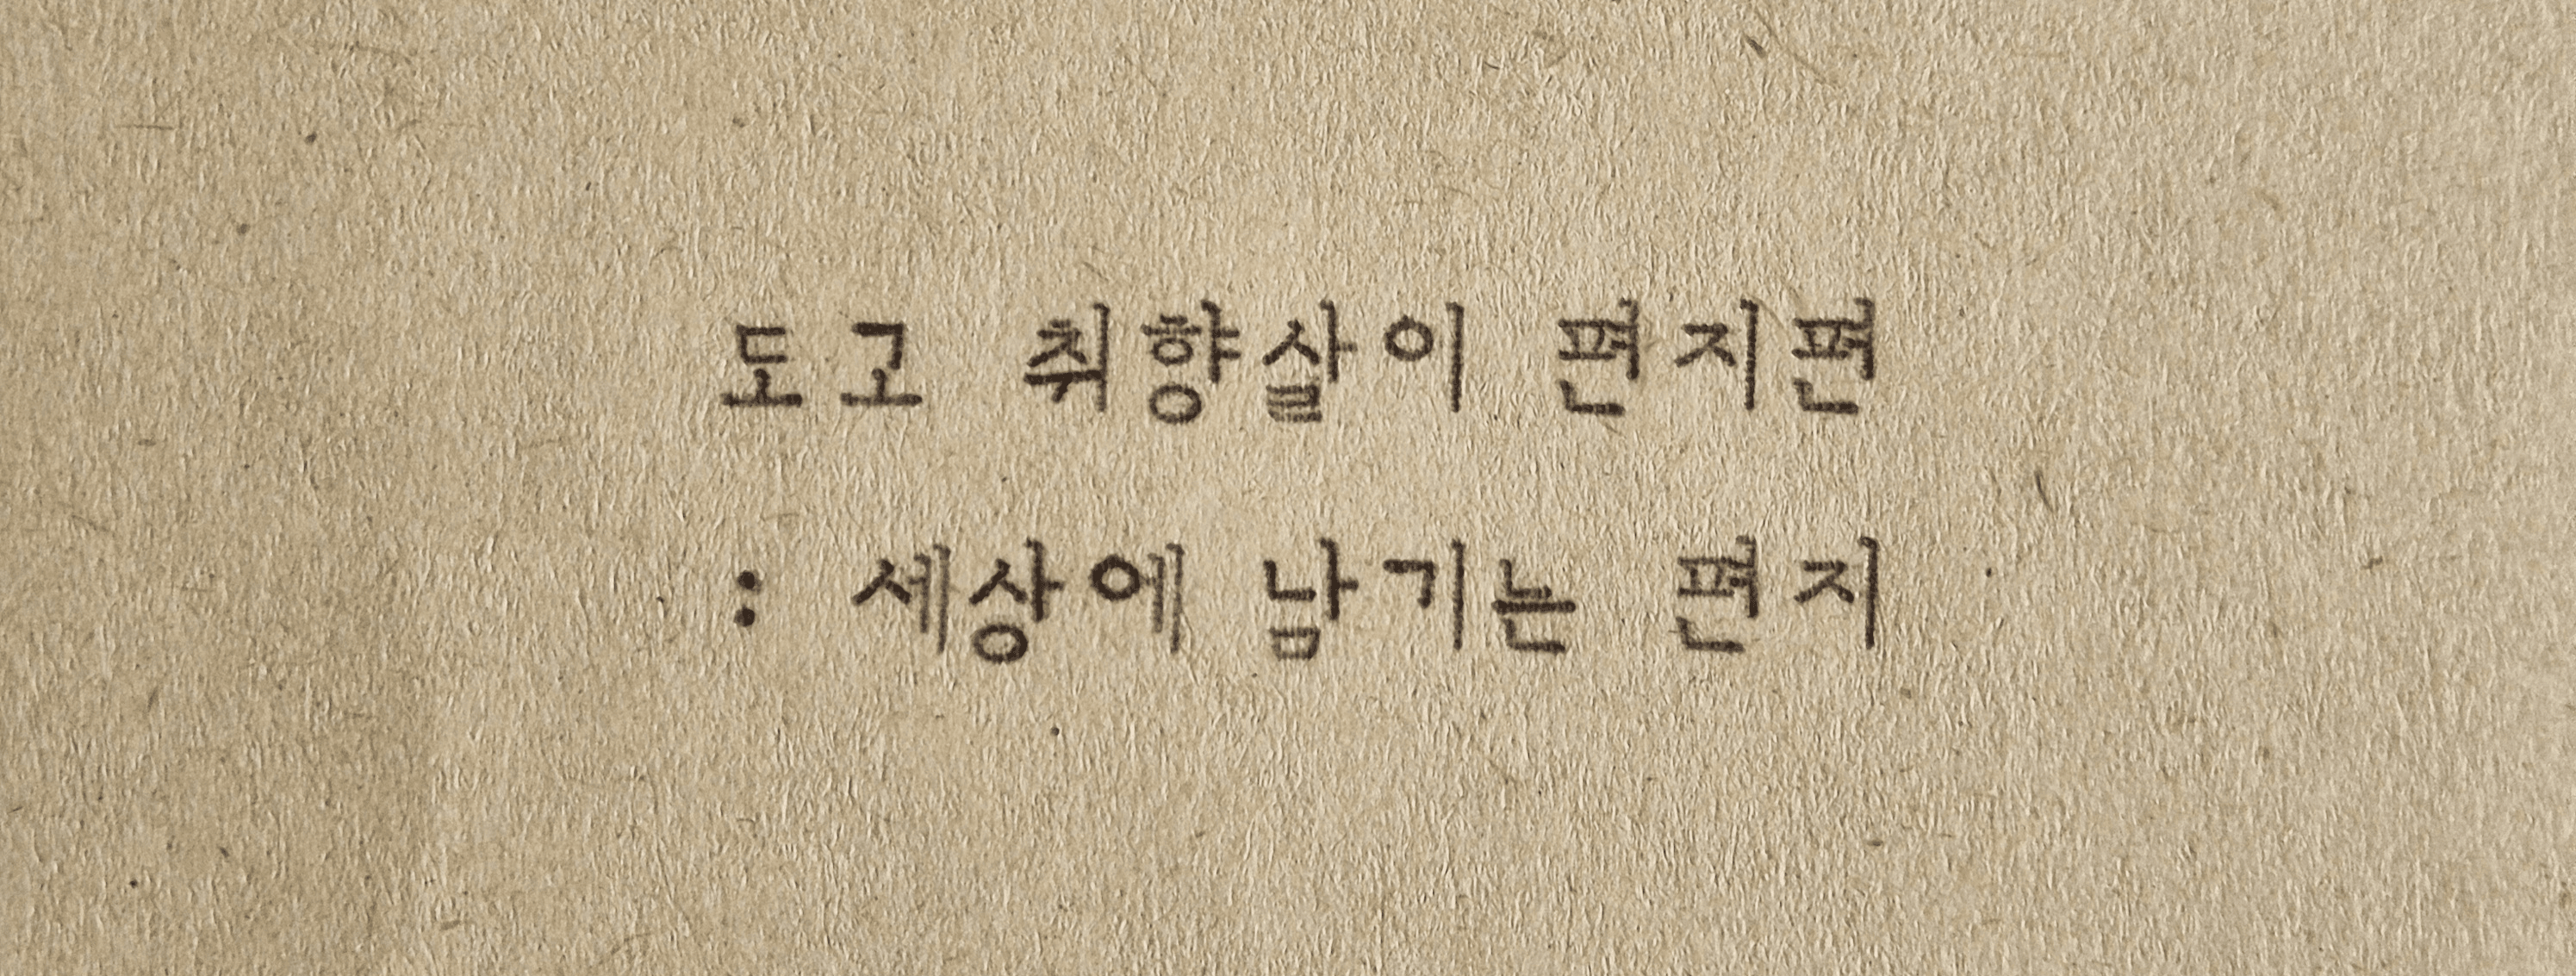 도고 취향살이 편지편
: 세상에 남기는 편지